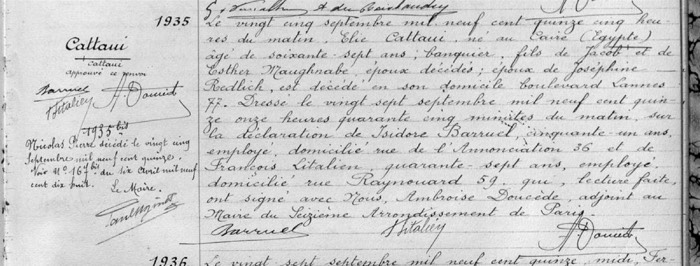 1935
Cattaui
Cattaui
approuvé ce renvoi
Barruel
Litalien A Doucède
1935 bis
Nicolas Pierre décédé le vingt cinq
Septembre mil neuf cent quinze.
Voir N° 467 bis du six Avril mil neuf
cent dix huit.
Le Maire,
1936
Le vingt cinq septembre mil neuf cent quinze cinq heu-
res du matin, Elie Cattaui, né au Caire (Egypte)
âgé de soixante-sept ans; banquier, fils de Jacob et de
Esther Maughnabe époux décédés; époux de Joséphine
Redlich, est décédé en son domicile boulevard Lannes
77. Dressé le vingt sept septembre mil neuf cent quin-
ze onze heures quarante cinq minutes du matin, sur
la déclaration de Isidore Barruel, cinquante-un ans,
employé, domicilié rue de l'Annonciation 36 et de
François Litalien, quarante-sept ans, employé
domicilié rue Raynouard 59, qui, lecture faite,
ont signé avec Nous, Ambroise Doucède, adjoint au
Maire du Seizième Arrondissement de Paris.
Barruel Litalien A Doucède
Le vingt-sept septembre mil neuf cent quinze, midi, Fer-